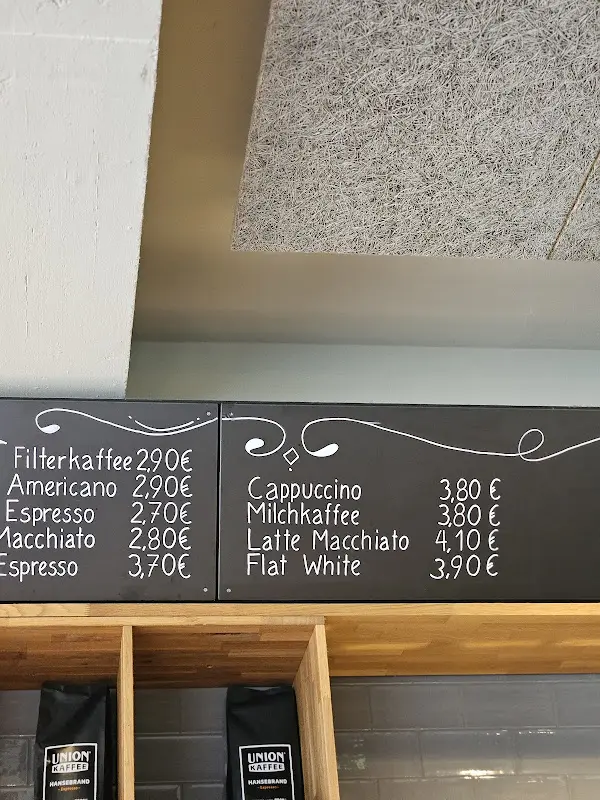 Filterkaffee 2,90€
Americano 2,90€
Espresso 2,70€
Macchiato 2,80€
Espresso 3,70€
Cappuccino 3,80 €
Milchkaffee 3,80 €
Latte Macchiato 4,10 €
Flat White 3,90€
UNION
KAFFEE
HANSEBRAND
Espresso
UNION
KAFFEE
HANSEBRAND
Espresso